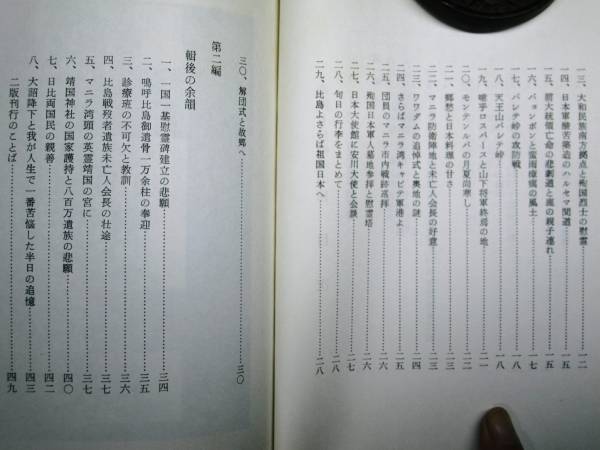 一三、大和民族南方拠点と殉国烈士の慰霊……一二
一四、日本軍酸苦築造のハルセマ間道……一五
一五、前大統領亡命の悲劇道と鹿の親子連れ……一五
一六、バヨンボンと蛮煙瘴癘の風土……一七
一七、バレテ峠の攻防戦……一八
一八、天王山バレテ峠……一八
一九、噫乎ロスバニースと山下将軍終焉の地……二一
二〇、モンテンルパの月夏尚寒し……二二
二一、郷愁と日本料理の甘さ……二二
二二、マニラ防衛陣地と未亡人会長の好意……二三
二三、ワワダムの追悼式と奥地の謎……二四
二四、さらばマニラ湾キャビテ軍港よ……二五
二五、団員のマニラ市内戦跡巡拝……二六
二六、殉国日本軍人墓地参拝と慰霊塔……二六
二七、日本大使館に安川大使と会談……二七
二八、旬日の行季をまとめて……二八
二九、比島よさらば祖国日本へ……二八
三〇、解団式と故郷へ……三〇
第二編
輯後の余韻
一、一国一基慰霊碑建立の悲願……三四
二、嗚呼比島御遺骨一万余柱の奉迎……三五
三、診療班の不可欠と教訓……三六
四、比島戦歿者遺族未亡人会長の壮途……三七
五、マニラ湾頭の英霊靖国の宮に……三七
六、靖国神社の国家護持と八百万遺族の悲願……四〇
七、日比両国民の親善……四二
八、大詔降下と我が人生で一番苦悩した半日の追憶……四三
二版刊行のことば……四九